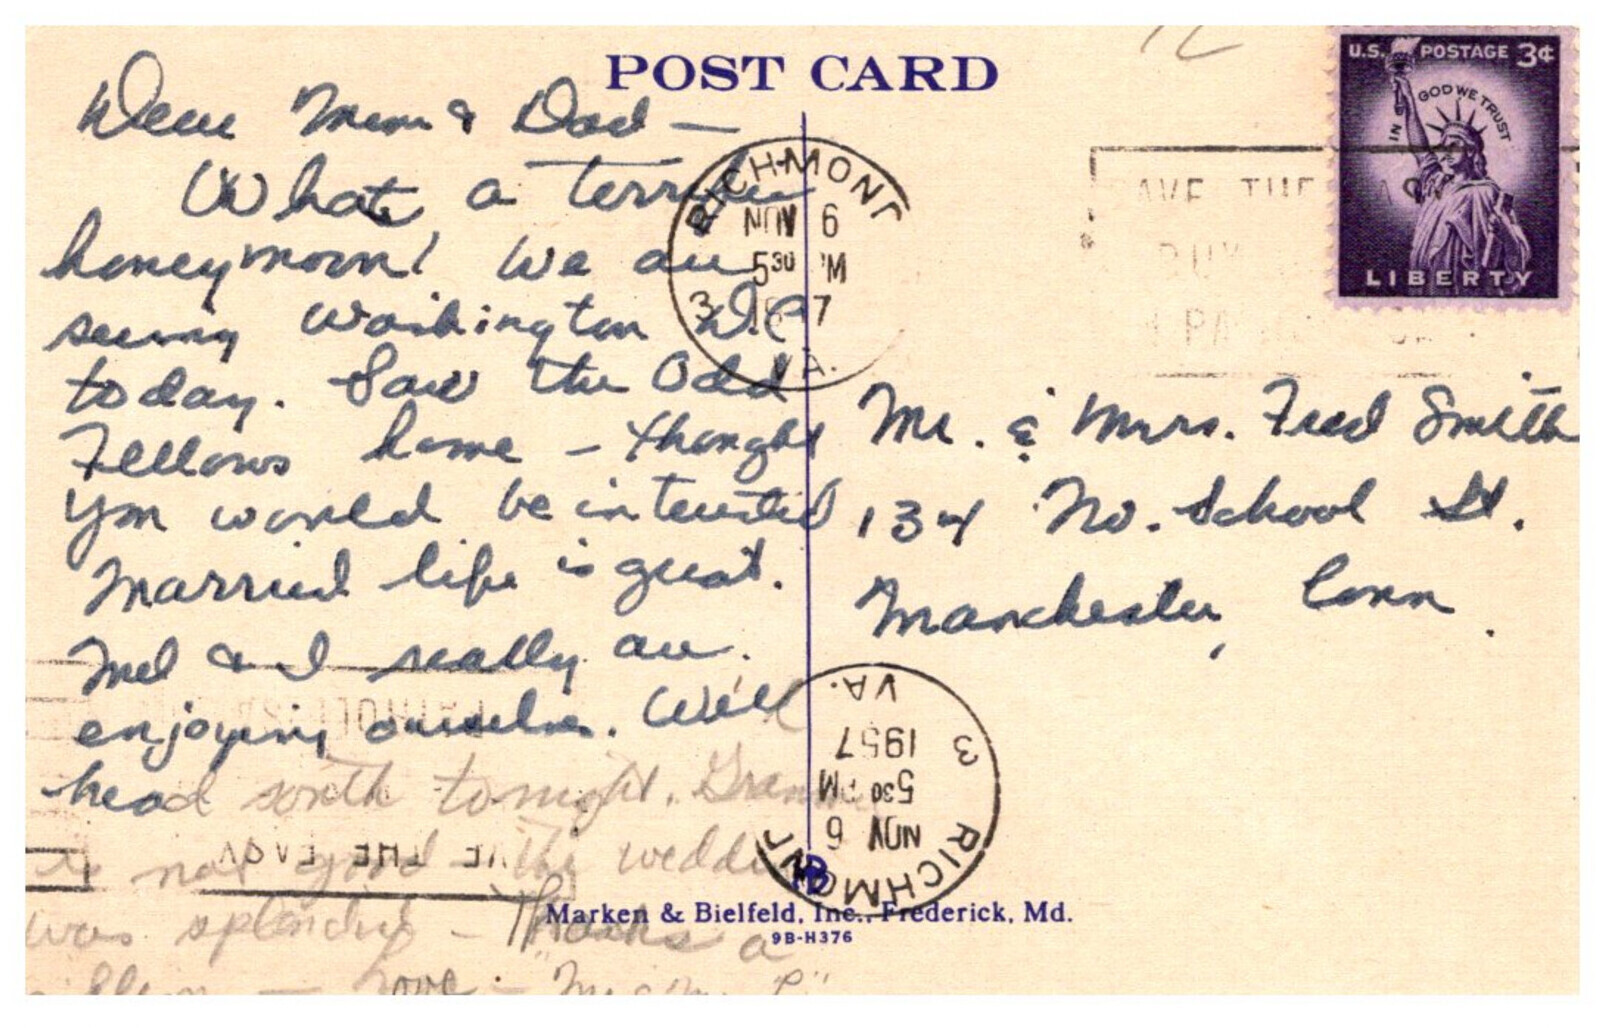 POST CARD
Dear Mom & Dad —
What a terrific
honeymoon! We are
seeing Washington D.C.
today. Saw the Odd
Fellows home – thought
you would be interested
Married life is great.
Mel & I really are
enjoying ourselves. Will
head south tonight.
is not good – The wedding
was splendid – Thanks a
million – Love –
U.S. POSTAGE 3¢
IN GOD WE TRUST
LIBERTY
RICHMOND
NOV 6
530 PM
3 1957
VA.
Mr. & Mrs. Fred Smith
134 No. School St.
Manchester, Conn.
RICHMOND
NOV 6
530 PM
1957
3
VA.
MB
Marken & Bielfeld, Inc., Frederick, Md.
9B-H376